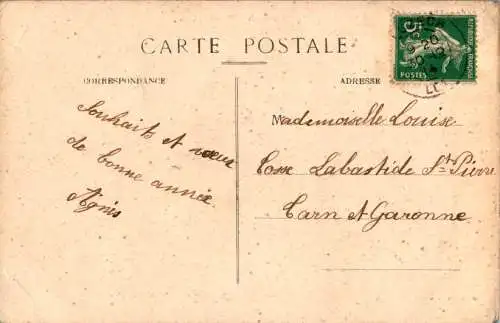 CARTE POSTALE
CORRESPONDANCE
ADRESSE
5c
REPUBLIQUE FRANÇAISE
POSTES
Souhaits et vœux
de bonne année
Agnis
Mademoiselle Louise
Cosse Labastide St Pierre
Tarn et Garonne